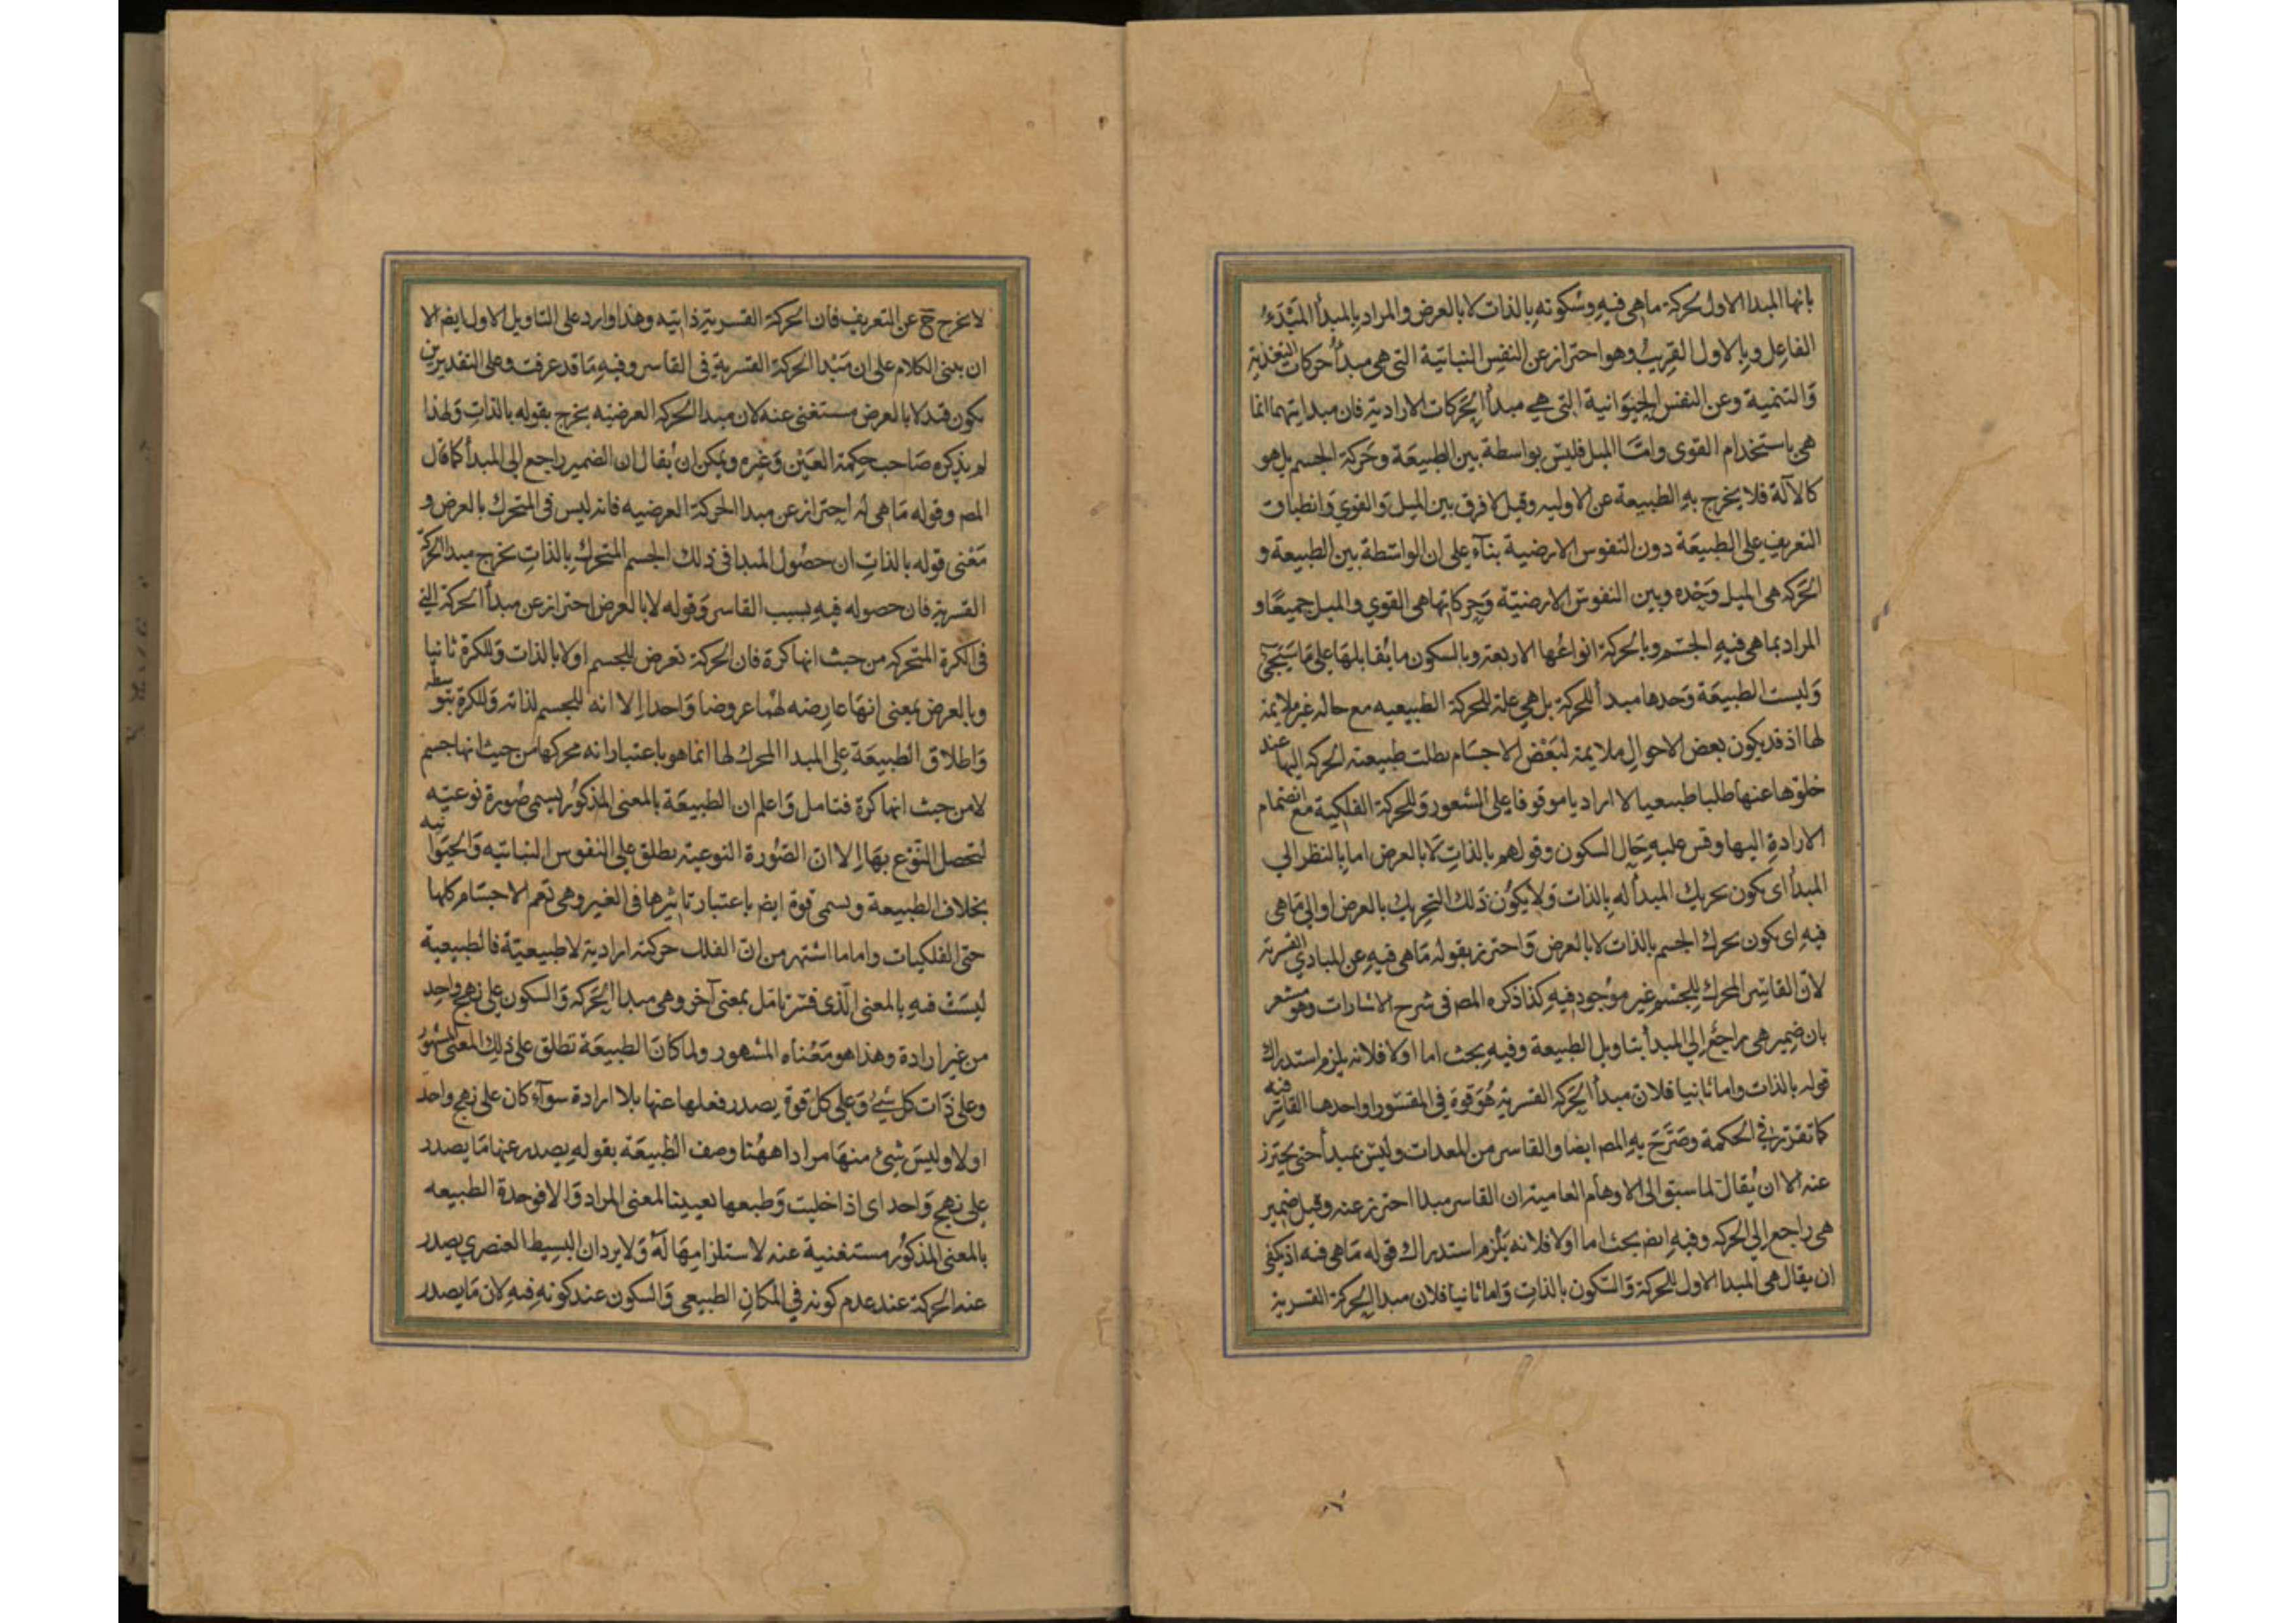 بانها المبدا الاول لحركة ما هى فيه وسكونه بالذات لا بالعرض والمراد بالمبدأ المَبْدَءُ
الفاعل وبالاول القريب وهو احتراز عن النفس النباتية التى هى مبدأ حركات التغذية
وَالتنمية وعن النفس الحَيَوَانية التى هي مبدأ الحَركات الارادية فان مبدايتهما انما
هى باستخدام القوى وامَّا الميل فليس بواسطة بين الطبيعَة وحَركة الجسم بل هو
كالآلة فلا يخرج به الطبيعة عن الاوليه وقيل لا فرق بين الميل وَالقوي وَانطباق
التعريف على الطبيعَة دون النفوس الارضية بنآء على ان الواسَطة بين الطبيعة و
الحَركه هى الميل وَحْده وبين النفوس الارضيّة وَحركاتها هى القوي والميل جميعًا و
المراد بما هى فيه الجسم وبالحركة انواعُها الاربعة وبالسكون ما يُقابلهَا على مَا يَسَجَئ
وَليست الطبيعَة وَحدها مبدأ للحركة بل هي علة للحركة الطبيعيه مع حالة غير ملايمة
لها اذ قد يكون بعض الاحوال ملايمة لبَعْض الاجسَام بطلت طبيعته الحركه اليها عند
خلوّها عنها طلبا طبيعيا لا اراديا موقوفا على الشعور وَللحركة الفلكية مع انضمام
الارادةِ اليها وقس عليه حَال السكون وقولهم بالذاتِ لا بالعرض اما بالنظر الي
المبدأ اى يكون تحريك المبدأ له بالذات وَلا يكوُن ذلك التحريك بالعرض او الي مَا هى
فيه اى يكون تحرك الجسم بالذات لا بالعرض وَاحترز بقوله مَا هى فيهِ عن المبادي القسرية
لانّ القاسِر المحرك للجسْم غير موُجود فيهِ كذا ذكره المص فى شرح الاشارات وهو مشعر
بان ضمير هى راجعٌ إلي المبدأ بتاويل الطبيعة وفيهِ بحث اما اولا فلانه يلزم استدراك
قوله بالذات واما ثانيا فلانّ مبدأ الحَركه القسرية هُوَ قوة في المقسُور اوجدها القاسِر فيه
كما تقرّر في الحكمة وصَرَّحَ بهِ المص ايضا والقاسر من المعدات وليس بمبدأ حتى يحترز
عنه الا ان يُقال لما سبق الى الاوهام العامية ان القاسر مبدا احترز عنه وقيل ضمير
هى راجع إلي الحركه وفيهِ ايض بحث اما اولا فلانه يلزم استدراك قوله مَا هى فيه اذ يكفى
ان يقال هى المبدا الاول للحركة وَالسّكون بالذاتِ وَاما ثانيا فلان مبدا الحركة القسرية
لا يخرج ح عن التعريف فان الحركة القسرية ذاتيه وهذا وارد على التاويل الاول ايض الا
ان يبنى الكلام على ان مَبْدا الحركة القسرية فى القاسر وفيهِ مَا قد عرفت وعلى التقديرين
يكون قيد لا بالعرض مستغنى عنه لان مبدا الحركه العرضيه يخرج بقوله بالذاتِ وَلهذا
لم يذكره صَاحب حكمة العَيْن وَغيره ويمكن انْ يُقال ان الضمير راجع الى المبدأ كما قال
المص وقوله مَا هى له احتراز عن مبدا الحركة العرضيه فانه ليس فى المتحرك بالعرض و
مَعْنى قوله بالذاتِ ان حصُول المبدا فى ذلك الجسم المتحرك بالذاتِ يخرج مبدا الحركة
القسرية فان حصوله فيهِ بسبب القاسر وَقوله لا بالعرض احتراز عن مبدأ الحركة التي
فى الكرة المتحركه من حيث انها كرة فان الحركة تعرض للجسم اولا بالذات وَللكرة ثانيا
وبالعرض بمعنى انهَا عارضه لهُما عروضا وَاحدا إلا انه للجسم لذاته وَللكرة بتوسطه
وَاطلاق الطبيعَة على المبدا المحرك لها انما هو باعتبار انه محركها من حيث انها جسم
لا من حيث انها كرة فتامل وَاعلم ان الطبيعَة بالمعنى المذكوُر يسمى صُورة نوعيّه
لتحصل النّوع بهَا إلا ان الصّورة النوعية يطلق على النفوس النباتيه وَالحيَوانيه
بخلاف الطبيعة ويسمى قوة ايض باعتبار تاثيرها فى الغير وهى تعم الاجسَام كلها
حتى الفلكيات واما ما اشتهر من انّ الفلك حركته ارادية لا طبيعيّة فالطبيعية
ليسَتْ فيهِ بالمعنى الّذى فسّر تامّل بمعنى آخر وهى مبدا الحَركه وَالسكون على نهج واحِد
من غير ارادة وهذا هو مَعْناه المشهور ولما كانَ الطبيعَة تطلق على ذلك المعنى المشهُور
وعلى ذَات كل شئ وَعلى كل قوة يصدر فعلها عنها بلا ارادة سوآء كان على نهج واحد
او لا وليسَ شئ منهَا مراد اههُنا وصف الطبيعَة بقوله يصدر عنها مَا يصدر
على نهج وَاحد اى اذا خليت وَطبعها تعيينا لمعنى المراد وَالا فوحدة الطبيعه
بالمعنى المذكوُر مستغنية عنه لاستلزامهَا لهُ وَلا يرد ان البسِيط العنصري يصدر
عنه الحركة عند عدم كونه في المكانِ الطبيعى وَالسكون عند كونهِ فيهِ لان مَا يصدر